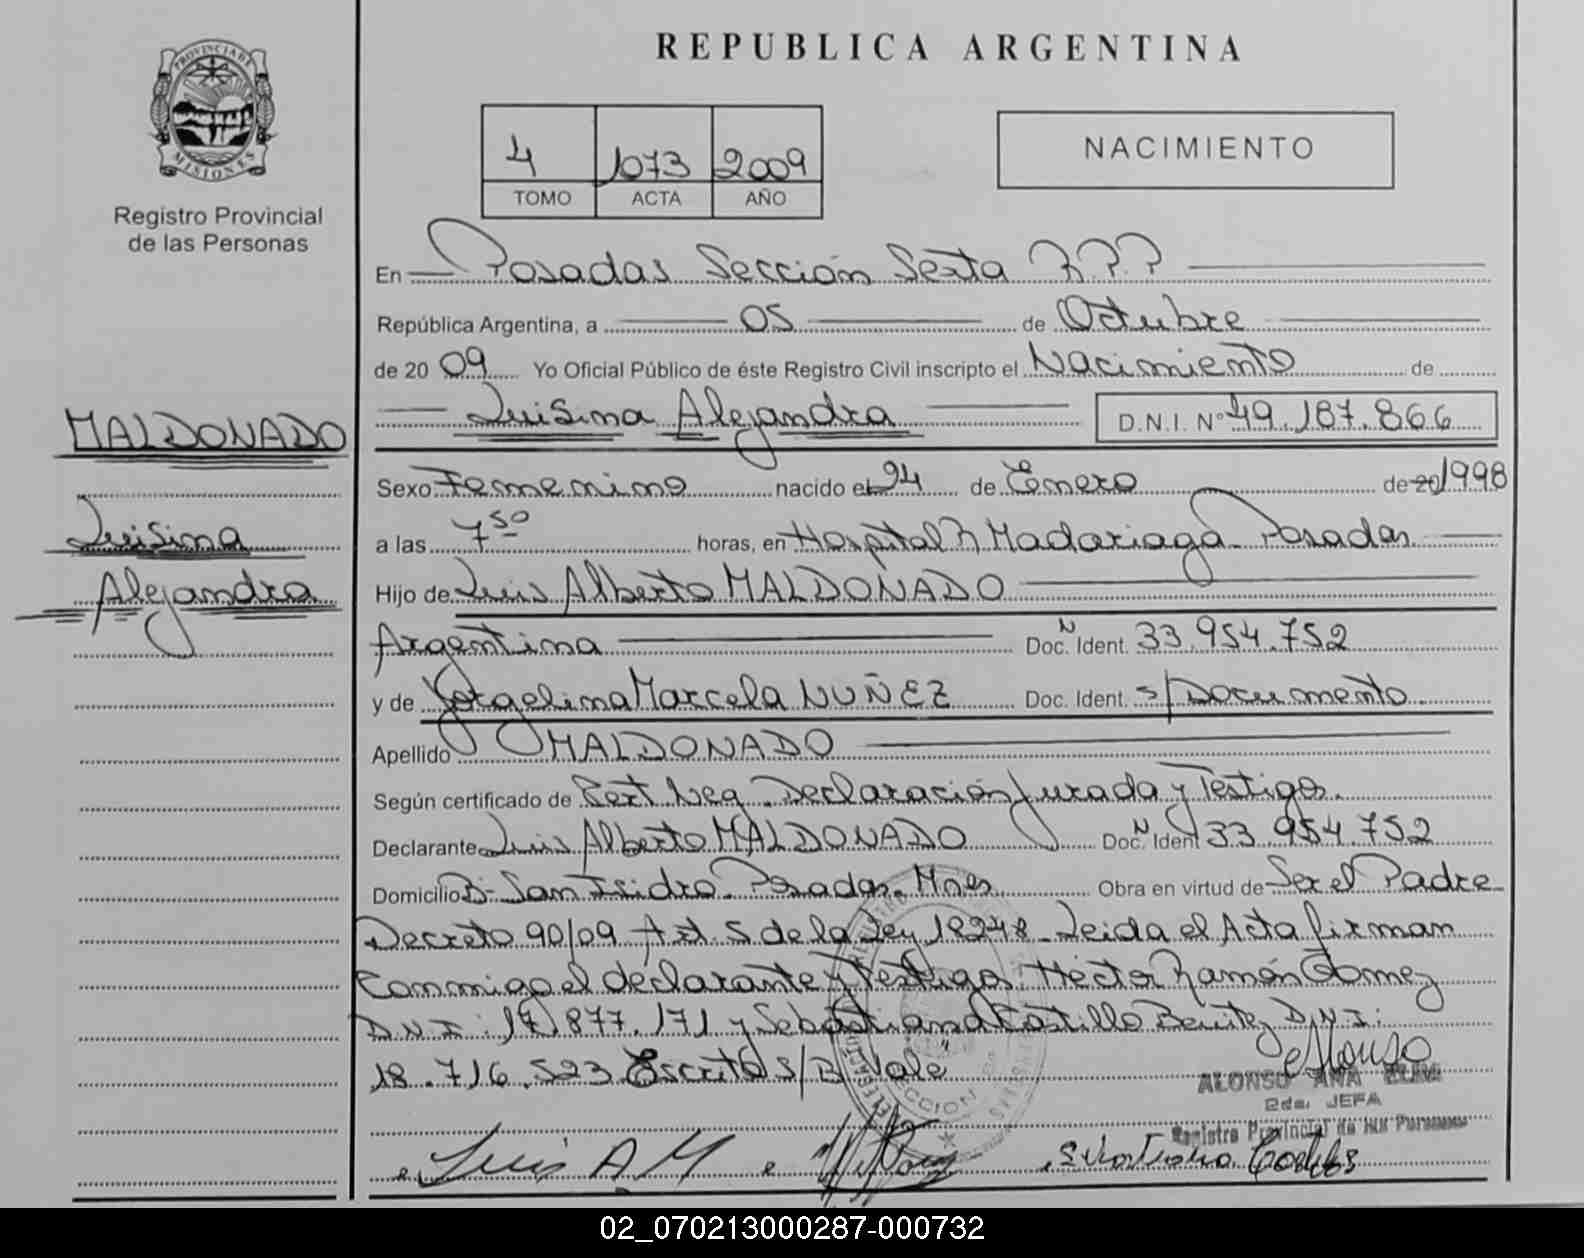 PROVINCIA DE
MISIONES
Registro Provincial
de las Personas
MALDONADO
Luisina
Alejandra
REPUBLICA ARGENTINA
4 1073 2009
TOMO ACTA AÑO
NACIMIENTO
En Posadas Sección Sexta R.P.P
República Argentina, a 05 de Octubre
de 2009 Yo Oficial Público de éste Registro Civil inscripto el Nacimiento de
Luisina Alejandra D.N.I. Nº 49.187.866
Sexo Femenino nacido el 24 de Enero de 20 1998
a las 7 50 horas, en Hospital R Madariaga Posadas
Hijo de Luis Alberto MALDONADO
Argentina Doc. N Ident. 33.954.752
y de Jorgelina Marcela NUÑEZ Doc. Ident. s/Documento
Apellido MALDONADO
Según certificado de Cert Neg. Declaración Jurada y Testigos.
Declarante Luis Alberto MALDONADO Doc. N Ident 33.954.752
Domicilio Bº San Isidro. Posadas. Mnes Obra en virtud de Ser el Padre
Decreto 90/09 Art. 5 de la Ley 18248 Leida el Acta firman
conmigo el declarante y Testigos. Héctor Ramón Gomez
D.N.I: 17.877.171 y Sebastiana Castillo Benitez D.N.I:
18.716.523 Escrito S/B "Vale"
ALONSO ANA ELBA
2da. JEFA
Registro Provincial de las Personas
Luis A M
02_070213000287-000732